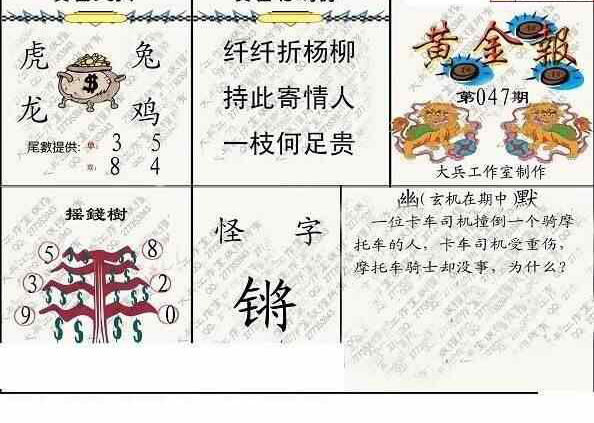 虎 兔
$
龙 鸡
尾數提供: 单: 3 5
双: 8 4
纤纤折杨柳
持此寄情人
一枝何足贵
黄金報
第047期
大兵工作室制作
摇錢樹
5 8
3 2
9 0
$ $ $ $ $ $
怪 字
锵
幽(玄机在期中)默
一位卡车司机撞倒一个骑摩
托车的人，卡车司机受重伤，
摩托车骑士却没事，为什么？